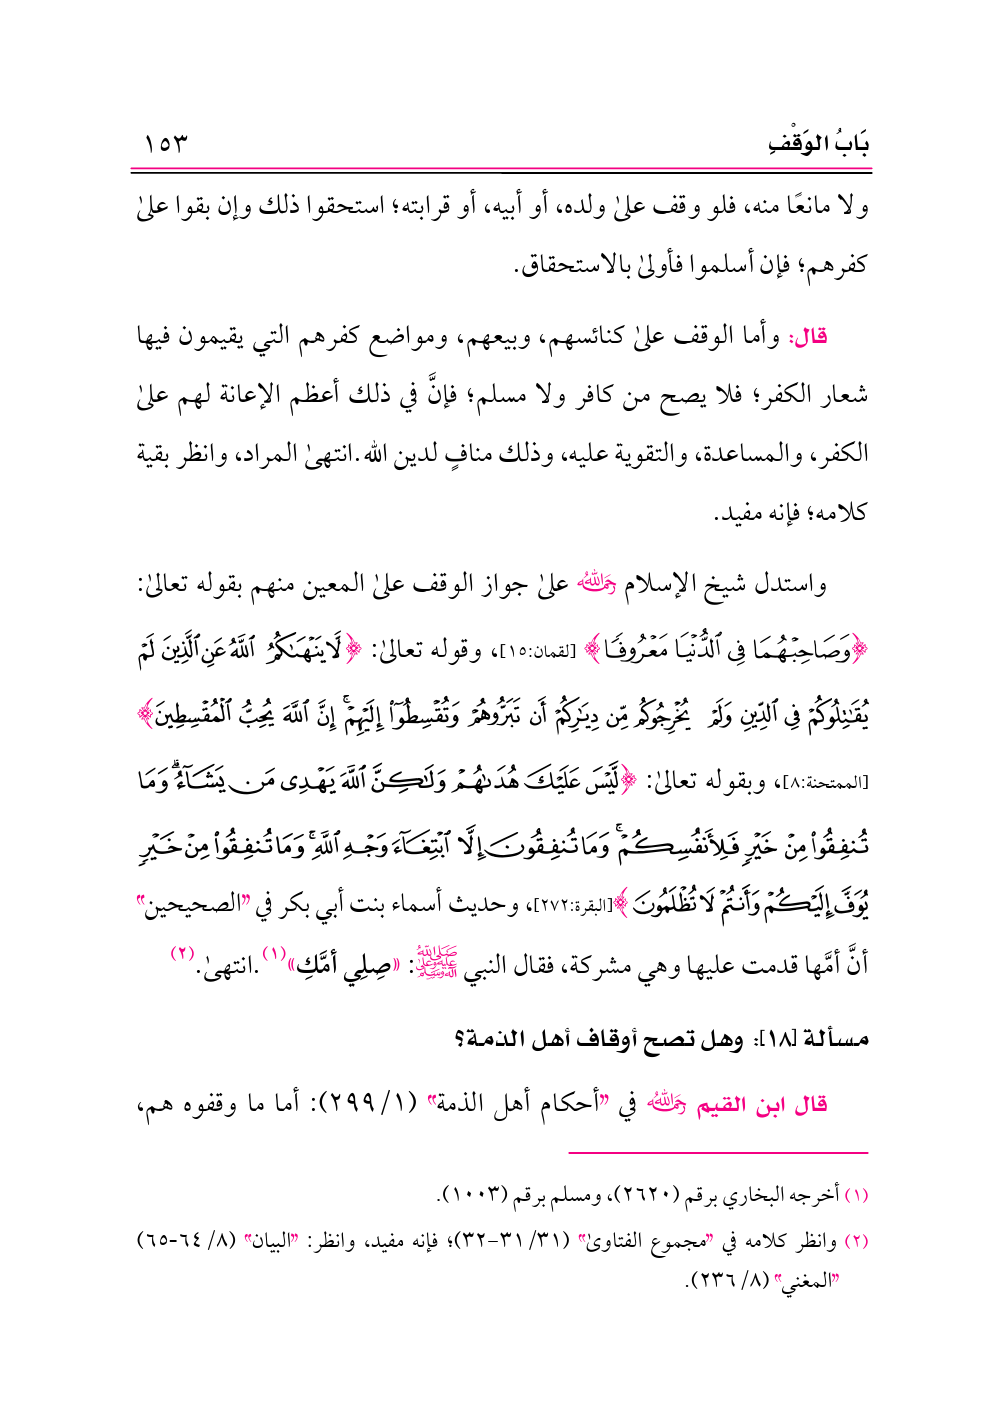 بَابُ الوَقْفِ ١٥٣
ولا مانعًا منه، فلو وقف علىٰ ولده، أو أبيه، أو قرابته؛ استحقوا ذلك وإن بقوا علىٰ
كفرهم؛ فإن أسلموا فأولىٰ بالاستحقاق.
قال: وأما الوقف علىٰ كنائسهم، وبيعهم، ومواضع كفرهم التي يقيمون فيها
شعار الكفر؛ فلا يصح من كافر ولا مسلم؛ فإنَّ في ذلك أعظم الإعانة لهم علىٰ
الكفر، والمساعدة، والتقوية عليه، وذلك منافٍ لدين الله.انتهىٰ المراد، وانظر بقية
كلامه؛ فإنه مفيد.
واستدل شيخ الإسلام رحمه الله علىٰ جواز الوقف علىٰ المعين منهم بقوله تعالىٰ:
﴿وَصَاحِبۡهُمَا فِي ٱلدُّنۡيَا مَعۡرُوفٗا﴾ [لقمان:١٥]، وقوله تعالىٰ: ﴿لَّا يَنۡهَىٰكُمُ ٱللَّهُ عَنِ ٱلَّذِينَ لَمۡ
يُقَٰتِلُوكُمۡ فِي ٱلدِّينِ وَلَمۡ يُخۡرِجُوكُم مِّن دِيَٰرِكُمۡ أَن تَبَرُّوهُمۡ وَتُقۡسِطُوٓاْ إِلَيۡهِمۡۚ إِنَّ ٱللَّهَ يُحِبُّ ٱلۡمُقۡسِطِينَ﴾
[الممتحنة:٨]، وبقوله تعالىٰ: ﴿لَّيۡسَ عَلَيۡكَ هُدَىٰهُمۡ وَلَٰكِنَّ ٱللَّهَ يَهۡدِي مَن يَشَآءُۗ وَمَا
تُنفِقُواْ مِنۡ خَيۡرٖ فَلِأَنفُسِكُمۡۚ وَمَا تُنفِقُونَ إِلَّا ٱبۡتِغَآءَ وَجۡهِ ٱللَّهِۚ وَمَا تُنفِقُواْ مِنۡ خَيۡرٖ
يُوَفَّ إِلَيۡكُمۡ وَأَنتُمۡ لَا تُظۡلَمُونَ﴾ [البقرة:٢٧٢]، وحديث أسماء بنت أبي بكر في "الصحيحين"
أنَّ أمَّها قدمت عليها وهي مشركة، فقال النبي ﷺ: «صِلِي أمَّكِ»(١).انتهىٰ.(٢)
مسألة [١٨]: وهل تصح أوقاف أهل الذمة؟
قال ابن القيم رحمه الله في "أحكام أهل الذمة" (١/ ٢٩٩): أما ما وقفوه هم،
(١) أخرجه البخاري برقم (٢٦٢٠)، ومسلم برقم (١٠٠٣).
(٢) وانظر كلامه في "مجموع الفتاوىٰ" (٣١/ ٣١-٣٢)؛ فإنه مفيد، وانظر: "البيان" (٨/ ٦٤-٦٥)
"المغني" (٨/ ٢٣٦).